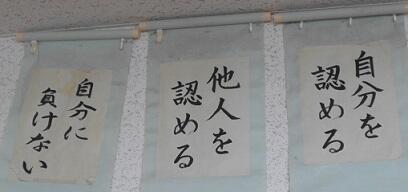 自分を
認める
他人を
認める
自分に
負けない